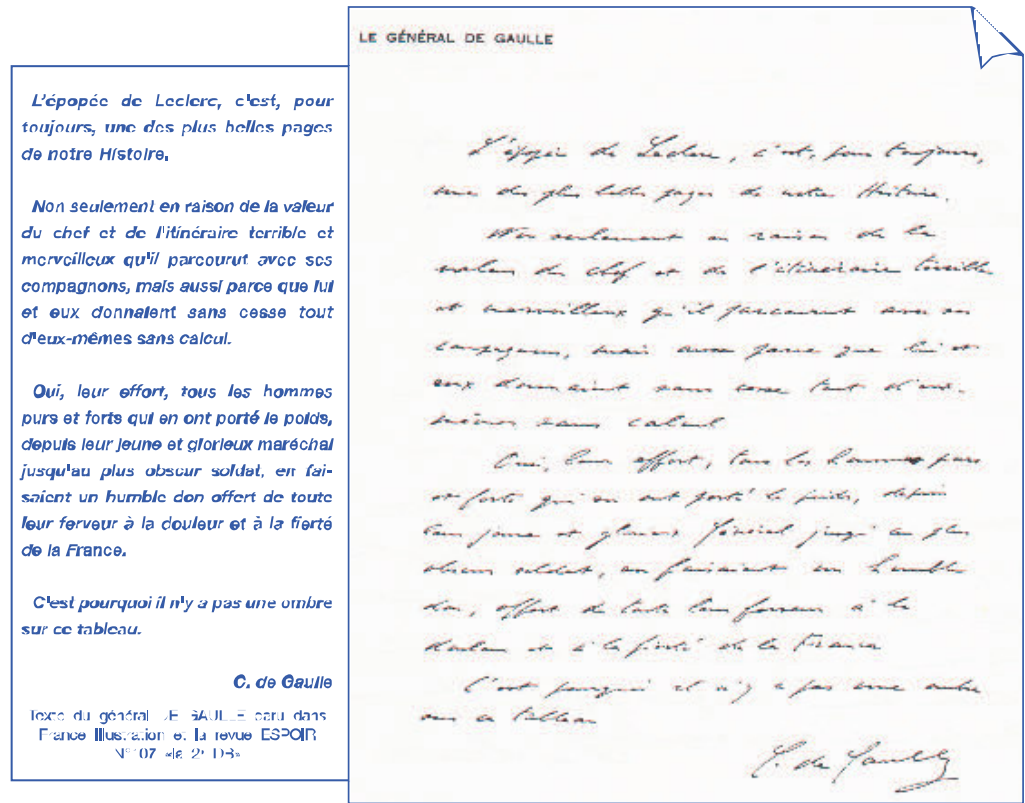 L'épopée de Leclerc, c'est, pour
toujours, une des plus belles pages
de notre Histoire.
Non seulement en raison de la valeur
du chef et de l'itinéraire terrible et
merveilleux qu'il parcourut avec ses
compagnons, mais aussi parce que lui
et eux donnaient sans cesse tout
d'eux-mêmes sans calcul.
Oui, leur effort, tous les hommes
purs et forts qui en ont porté le poids,
depuis leur jeune et glorieux maréchal
jusqu'au plus obscur soldat, en fai-
saient un humble don offert de toute
leur ferveur à la douleur et à la fierté
de la France.
C'est pourquoi il n'y a pas une ombre
sur ce tableau.
C. de Gaulle
Texte du général DE GAULLE paru dans
France Illustration et la revue ESPOIR
N° 107 «la 2e DB»
LE GÉNÉRAL DE GAULLE
L'épopée de Leclerc, c'est, pour toujours,
une des plus belles pages de notre Histoire.
Non seulement en raison de la
valeur du chef et de l'itinéraire terrible
et merveilleux qu'il parcourut avec ses
compagnons, mais aussi parce que lui et
eux donnaient sans cesse tout d'eux-
mêmes sans calcul
Oui, leur effort, tous les hommes purs
et forts qui en ont porté le poids, depuis
leur jeune et glorieux Général jusqu'au plus
obscur soldat, en faisaient un humble
don, offert de toute leur ferveur à la
douleur et à la fierté de la France
C'est pourquoi il n'y a pas une ombre
sur ce tableau
C. de Gaulle